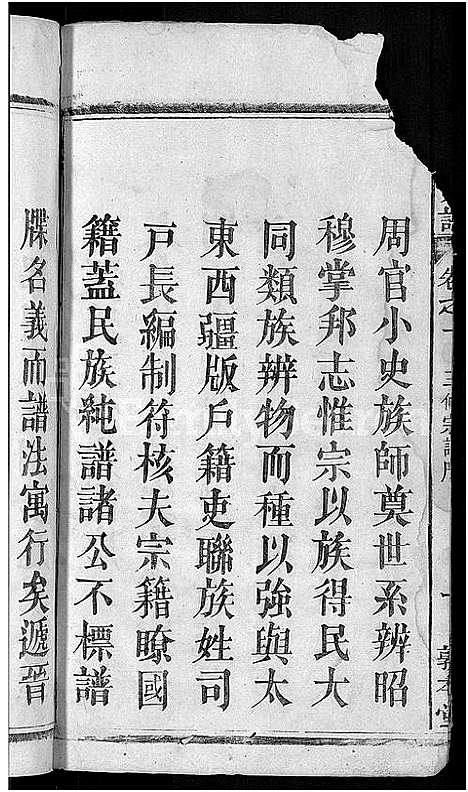 周官小史族師奠世系辨昭
穆掌邦志惟宗以族得民大
同類族辨物而種以強與太
東西疆版戶籍吏聯族姓司
戸長編制符核夫宗籍瞭國
籍蓋民族純譜諸公不標譜
牒名義而譜法寓行矣遞晉
譜 卷之一 三修宗譜序 一 敦本堂